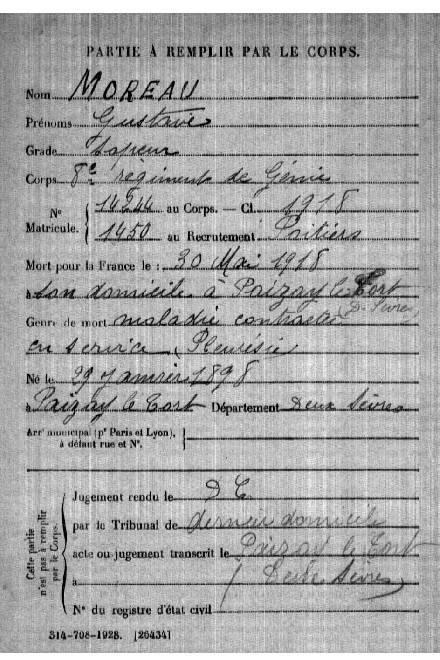 PARTIE À REMPLIR PAR LE CORPS.
Nom MOREAU
Prénoms Gustave
Grade Sapeur
Corps 8e régiment de Génie
N° Matricule. 14244 au Corps. — Cl. 1918
1450 au Recrutement Poitiers
Mort pour la France le : 30 Mai 1918
à son domicile à Paizay le Tort (D. Sèvres)
Genre de mort maladie contractée
en service (Pleurésie
Né le 29 Janvier 1898
à Paizay le Tort Département Deux Sèvres
Arrt municipal (pr Paris et Lyon),
à défaut rue et N°.
Cette partie n'est pas à remplir par le Corps.
Jugement rendu le D C
par le Tribunal de dernier domicile
acte ou jugement transcrit le Paizay le Tort
à Deux Sèvres
N° du registre d'état civil
314-708-1928. [26434]